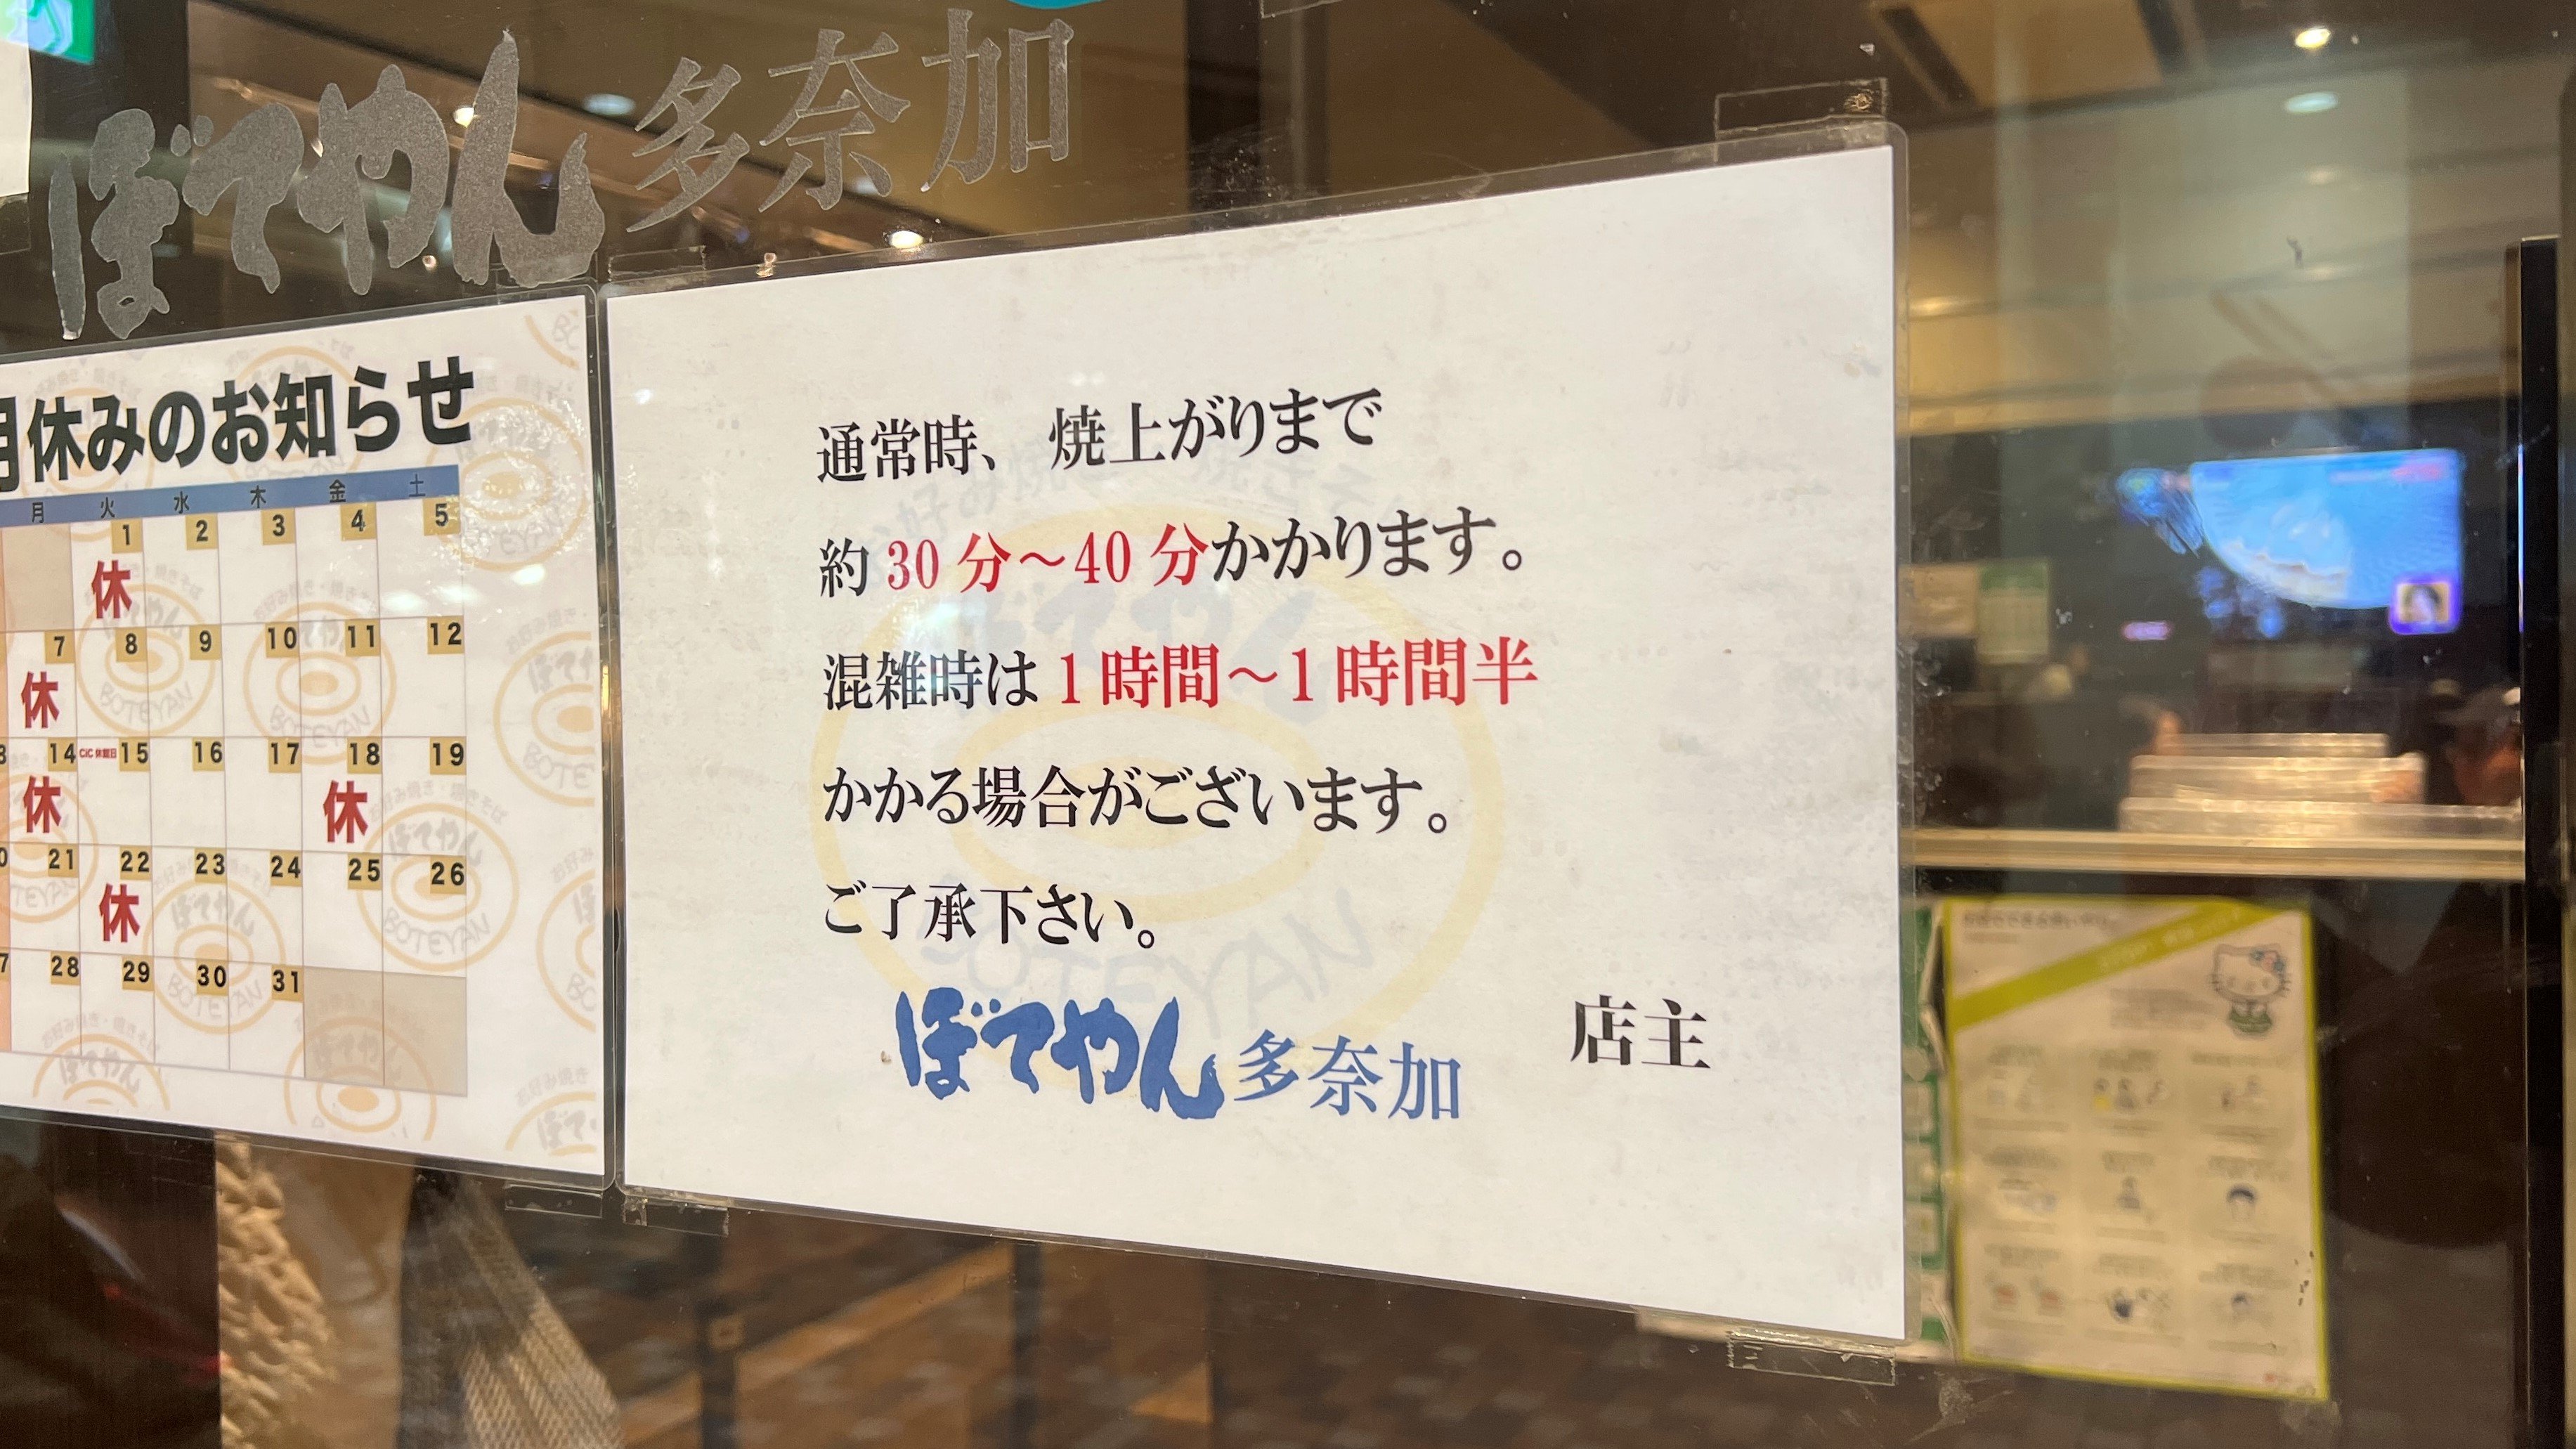 ぼてやん多奈加
月休みのお知らせ
月 火 水 木 金 土
1 2 3 4 5
休
7 8 9 10 11 12
休
14 CiC 休館日 15 16 17 18 19
休 休
21 22 23 24 25 26
休
28 29 30 31
通常時、 焼上がりまで
約 30 分〜40 分かかります。
混雑時は 1 時間〜1 時間半
かかる場合がございます。
ご了承下さい。
ぼてやん多奈加 店主
BOTEYAN